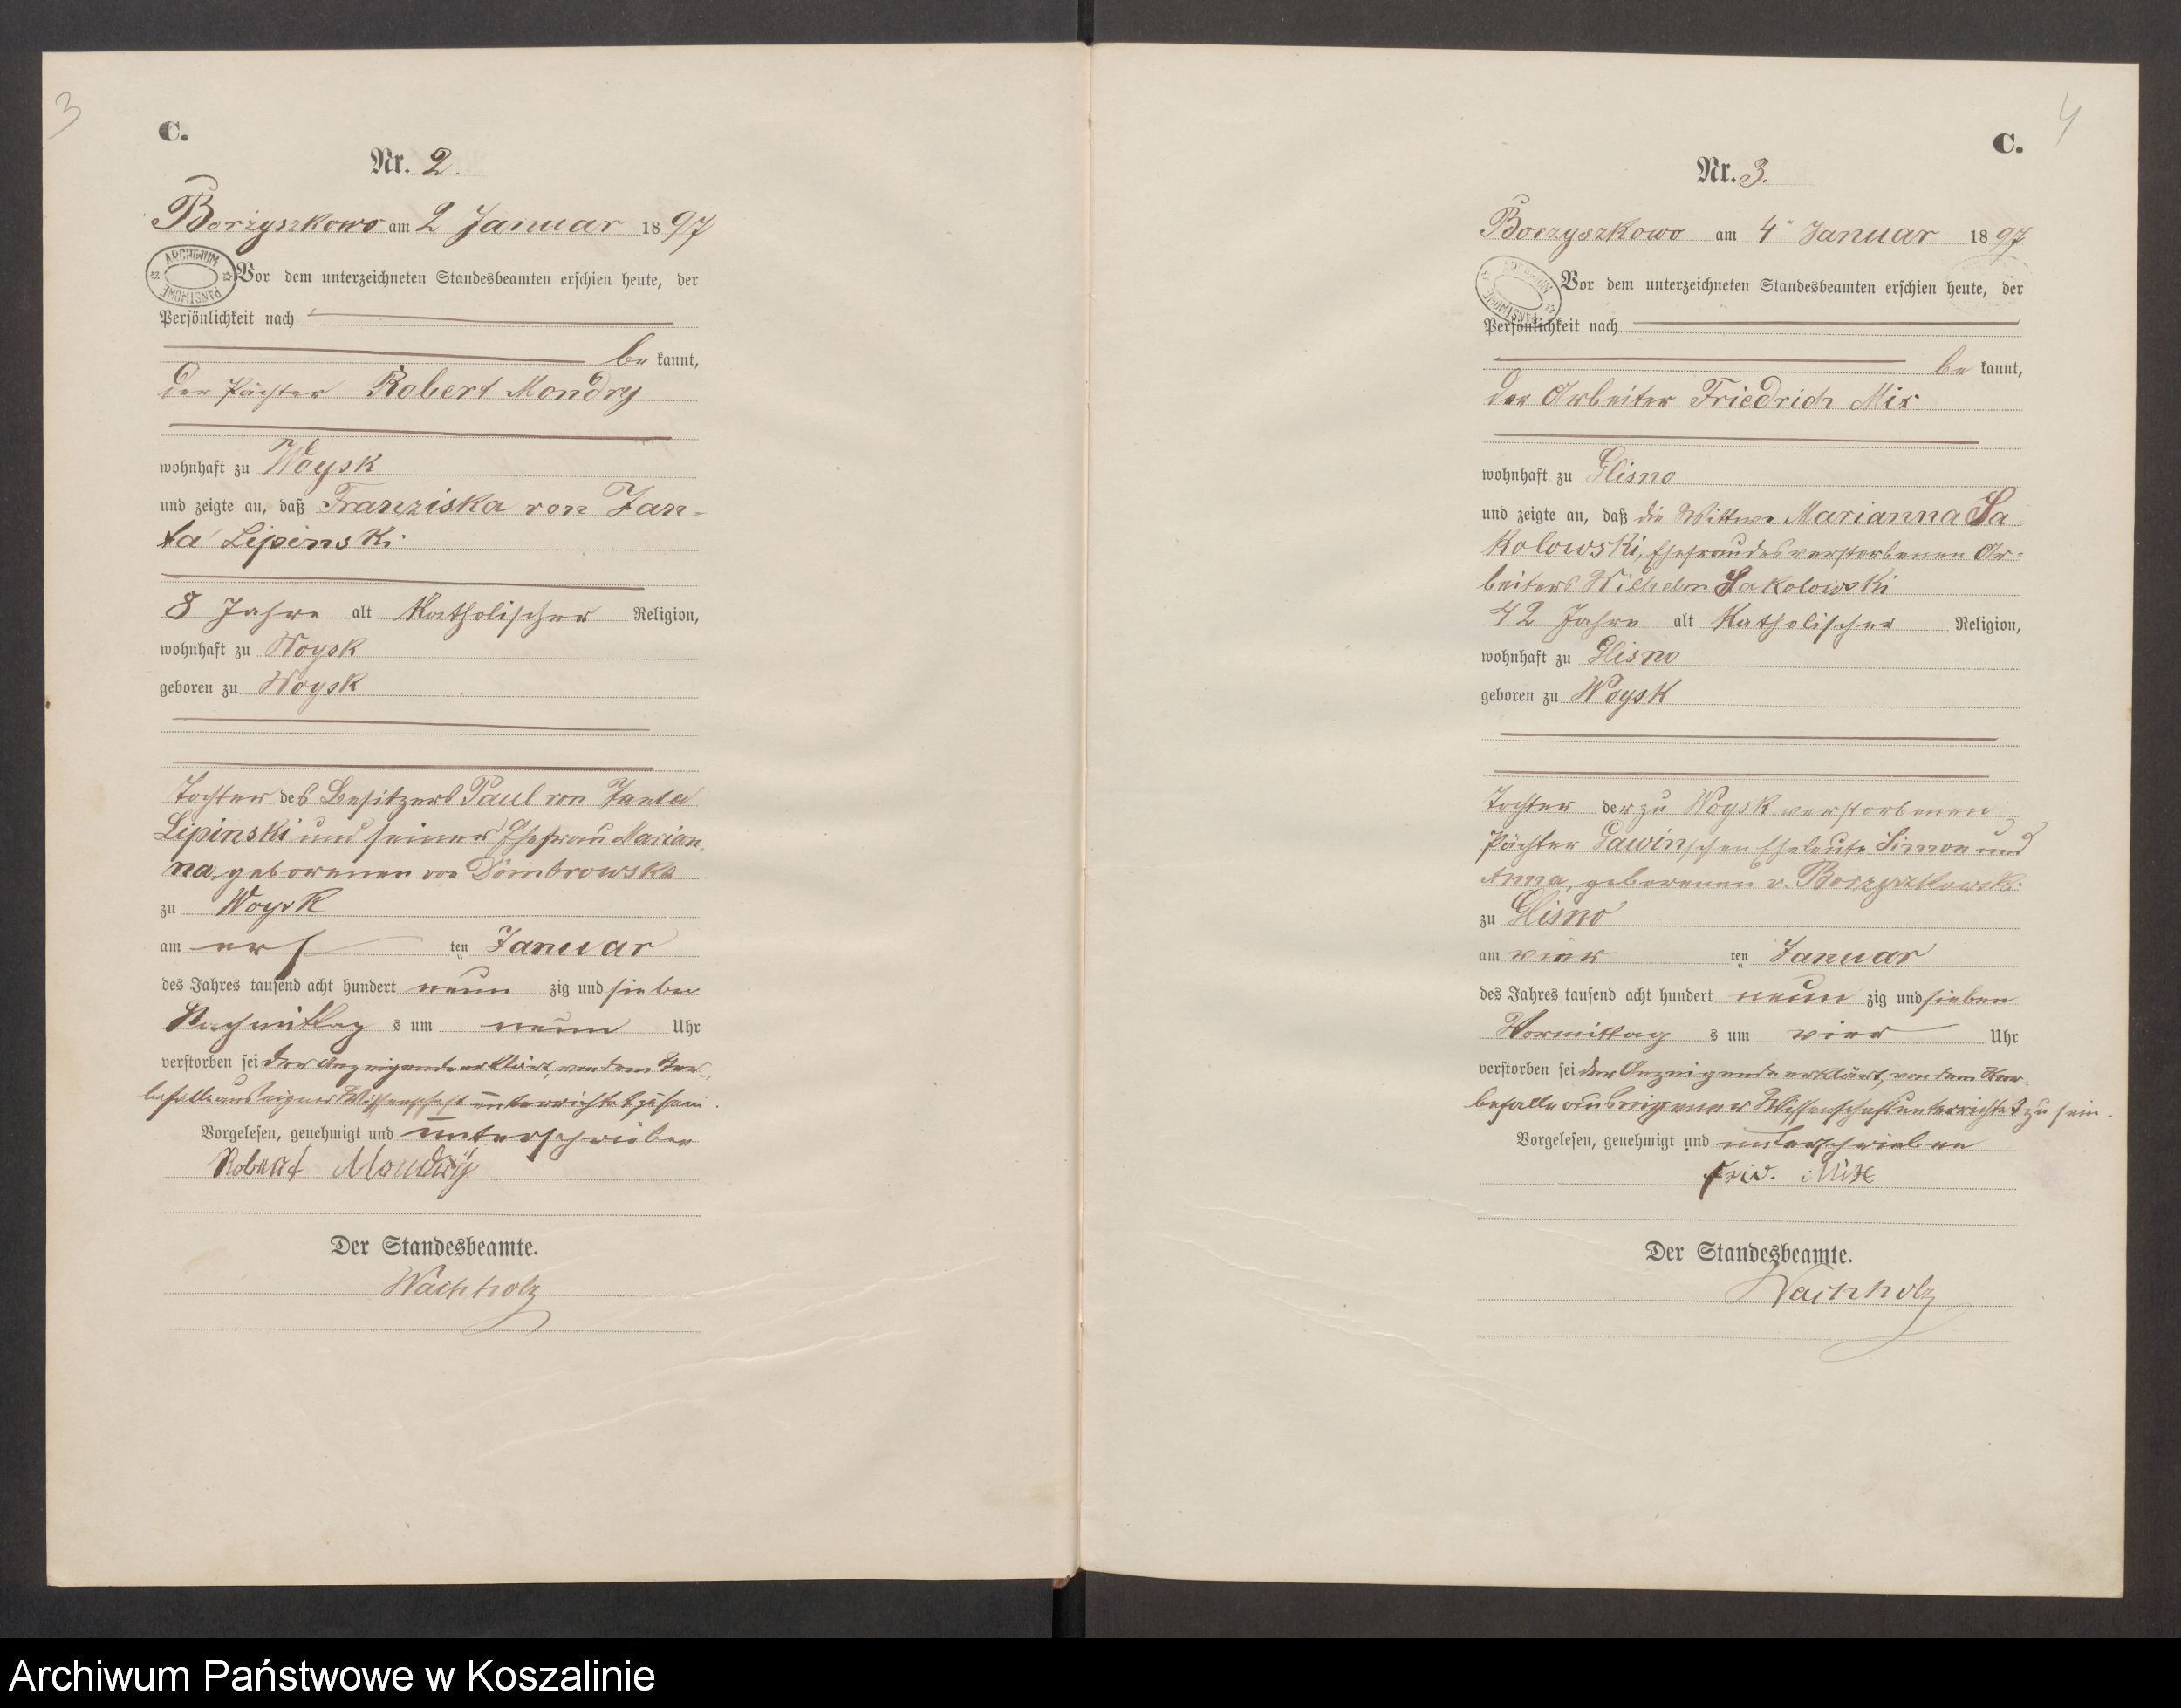 3
C.
Nr. 2.
Borzyszkowo am 2 Januar 1897
ARCHIWUM PAŃSTWOWE
Vor dem unterzeichneten Standesbeamten erschien heute, der
Persönlichkeit nach
be kannt,
der Pächter Robert Mondry
wohnhaft zu Woysk
und zeigte an, daß Franziska von Jan-
ta Lipinski
8 Jahre alt Katholischer Religion,
wohnhaft zu Woysk
geboren zu Woysk
Tochter des Besitzers Paul von Janta
Lipinski und seiner Ehefrau Marian-
na, geborenen von Dombrowska
zu Woysk
am ers ten Januar
des Jahres tausend acht hundert neun zig und sieben
Nachmittag s um neun Uhr
verstorben sei der Anzeigende erklärt, von dem Ster-
befalle aus eigner Wissenschaft unterrichtet zu sein.
Vorgelesen, genehmigt und unterschrieben
Robert Mondry
Der Standesbeamte.
Wachholz
4
C.
Nr. 3.
Borzyszkowo am 4" Januar 1897
ARCHIWUM PAŃSTWOWE
Vor dem unterzeichneten Standesbeamten erschien heute, der
Persönlichkeit nach
be kannt,
der Arbeiter Friedrich Mix
wohnhaft zu Glisno
und zeigte an, daß die Wittwe Marianna Sa
kolowski, Ehefrau des verstorbenen Ar-
beiters Wilhelm Sakolowski
42 Jahre alt Katholischer Religion,
wohnhaft zu Glisno
geboren zu Woysk
Tochter der zu Woysk verstorbenen
Pächter Gawinschen Eheleute Simon und
Anna, geborenen v. Borzyszkowski
zu Glisno
am vier ten Januar
des Jahres tausend acht hundert neun zig und sieben
Vormittag s um vier Uhr
verstorben sei der Anzeigende erklärt, von dem Ster-
befalle aus eigener Wissenschaft unterrichtet zu sein.
Vorgelesen, genehmigt und unterschrieben
Frid. Mix
Der Standesbeamte.
Wachholz
Archiwum Państwowe w Koszalinie